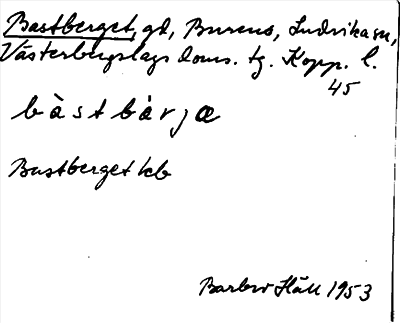 Bastberget, gd, Burens, Ludvika sn,
Västerbergslags doms. tg. Kopp. l.
45
bàstbàrjæ
Bastberget kb
Barbro Häll 1953